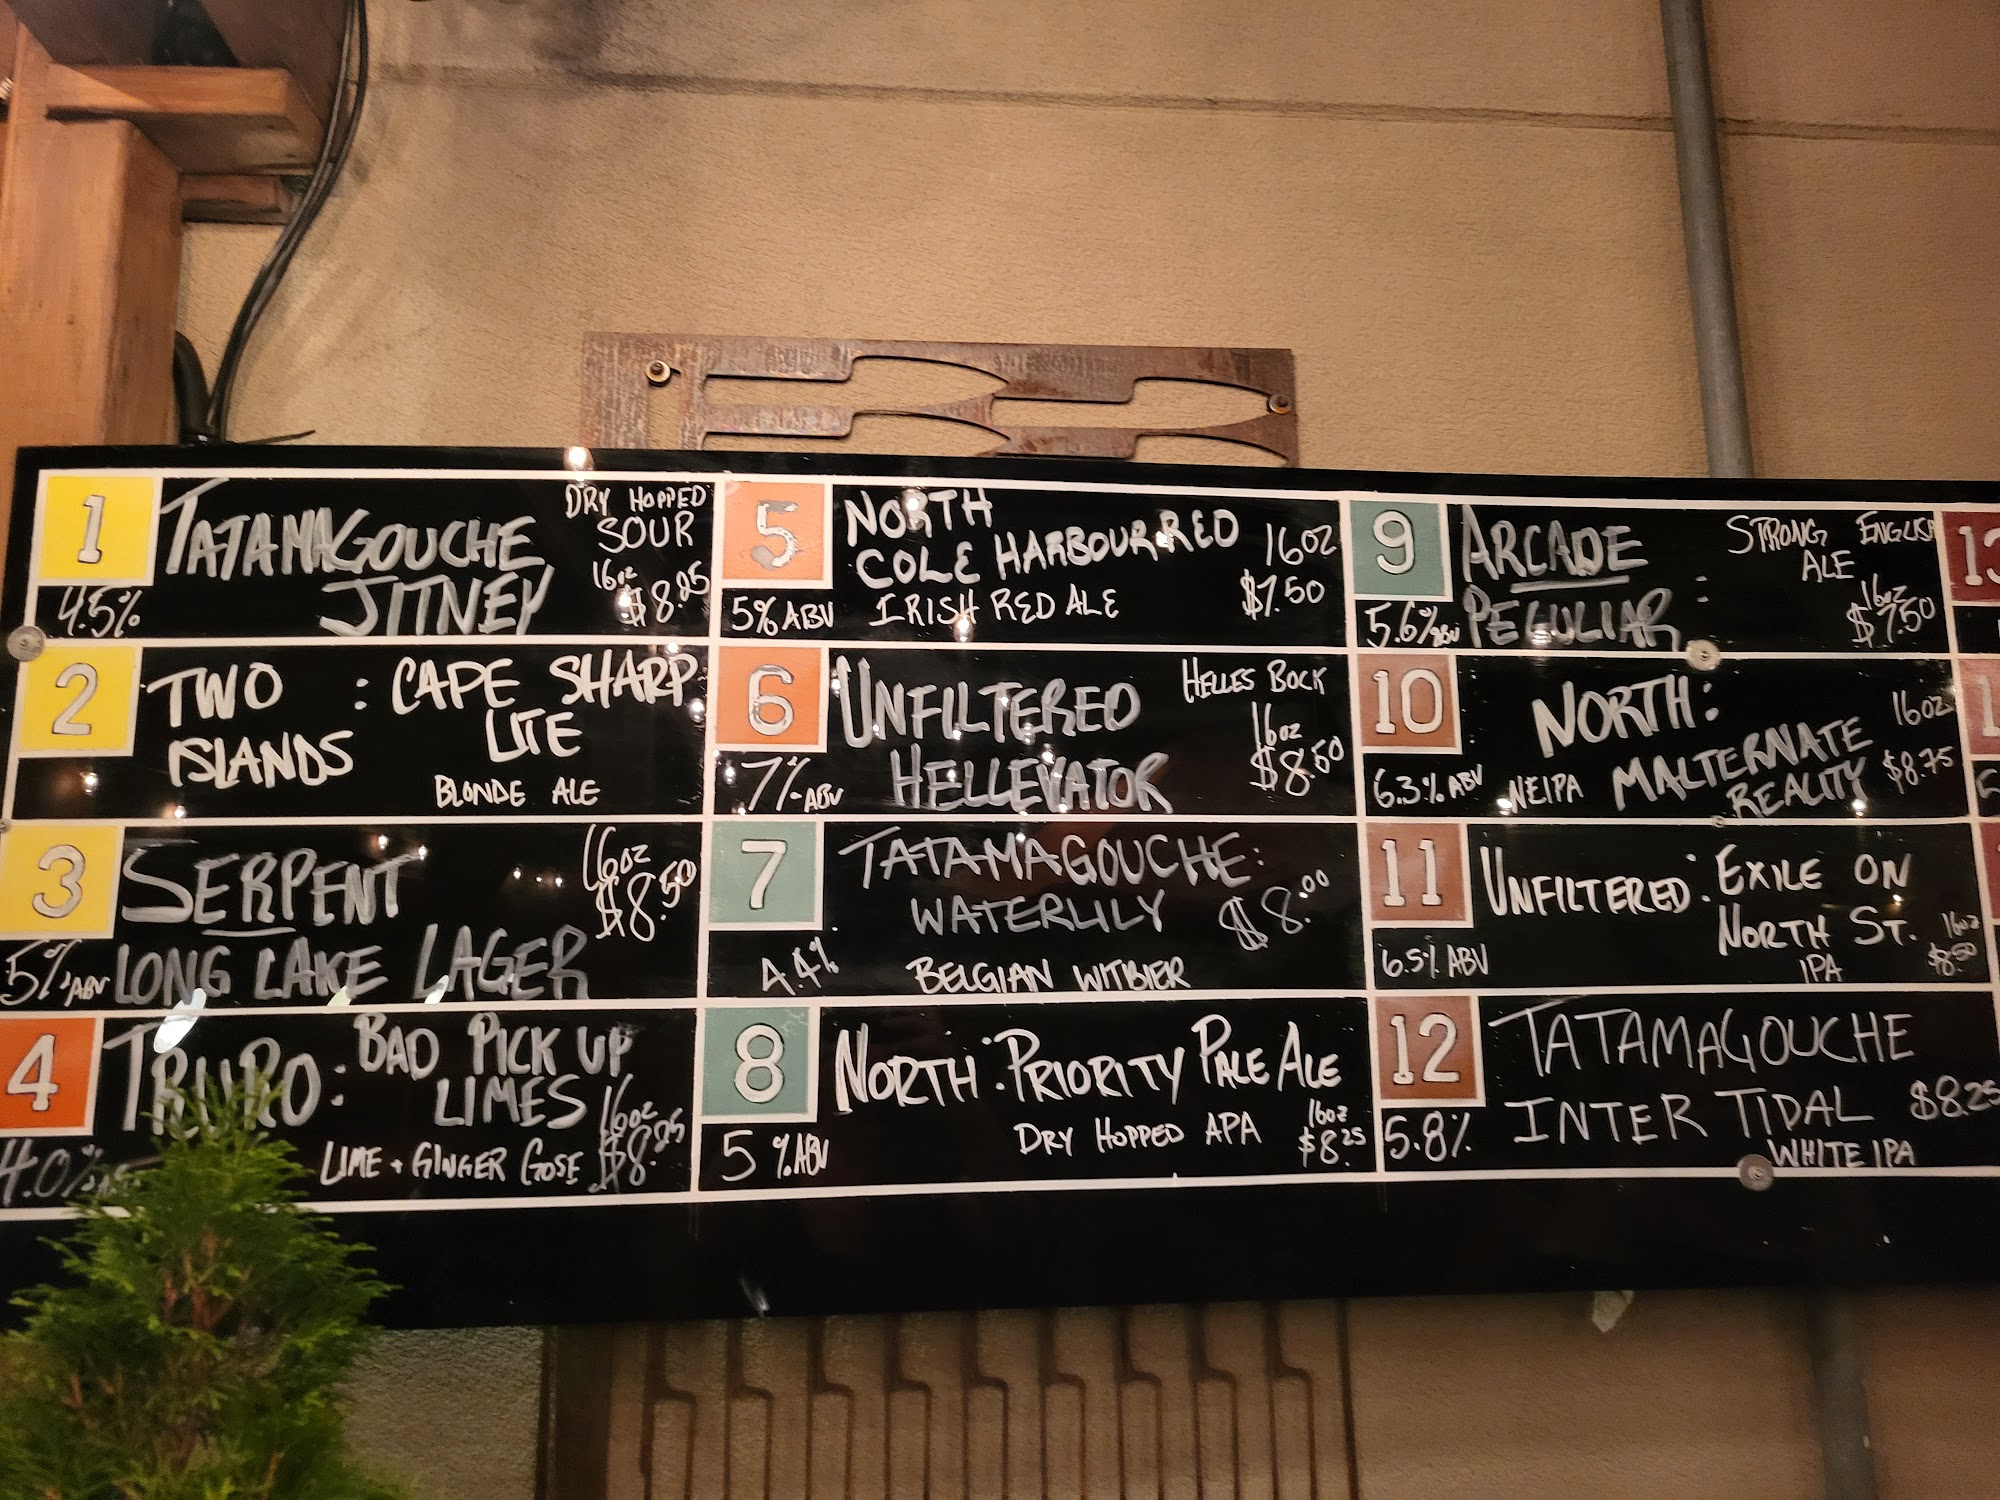 1
TATAMAGOUCHE
JITNEY
DRY HOPPED
SOUR
16oz
$8.25
4.5%
2
TWO : CAPE SHARP
ISLANDS LITE
BLONDE ALE
3
SERPENT
16oz
$8.50
5% ABV
LONG LAKE LAGER
4
TRURO : BAD PICK UP
LIMES
16oz
$8.25
LIME + GINGER GOSE
4.0%
5
NORTH
COLE HARBOUR RED
IRISH RED ALE
16oz
$7.50
5% ABV
6
UNFILTERED
HELLEVATOR
HELLES BOCK
16oz
$8.50
7% ABV
7
TATAMAGOUCHE:
WATERLILY
$8.00
4.4%
BELGIAN WITBIER
8
NORTH : PRIORITY PALE ALE
DRY HOPPED APA
16oz
$8.25
5 % ABV
9
ARCADE :
PECULIAR
STRONG ENGLISH
ALE
16oz
$7.50
5.6% ABV
10
NORTH:
MALTERNATE
REALITY
16oz
$8.75
6.3% ABV
NEIPA
11
UNFILTERED : EXILE ON
NORTH ST.
IPA
16oz
$8.50
6.5% ABV
12
TATAMAGOUCHE
INTER TIDAL
$8.25
WHITE IPA
5.8%